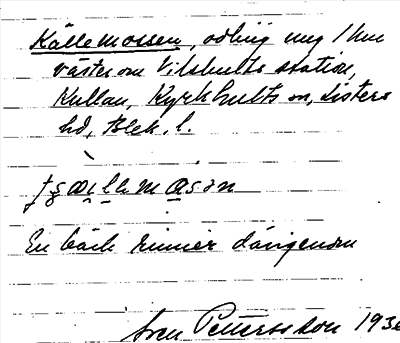 Källemossen, odling ung 1 km
väster om Vilshults station,
Kullan, Kyrkhults sn, Listers
hd, Blek. l.
En bäck rinner därigenom
Sven Pettersson 193